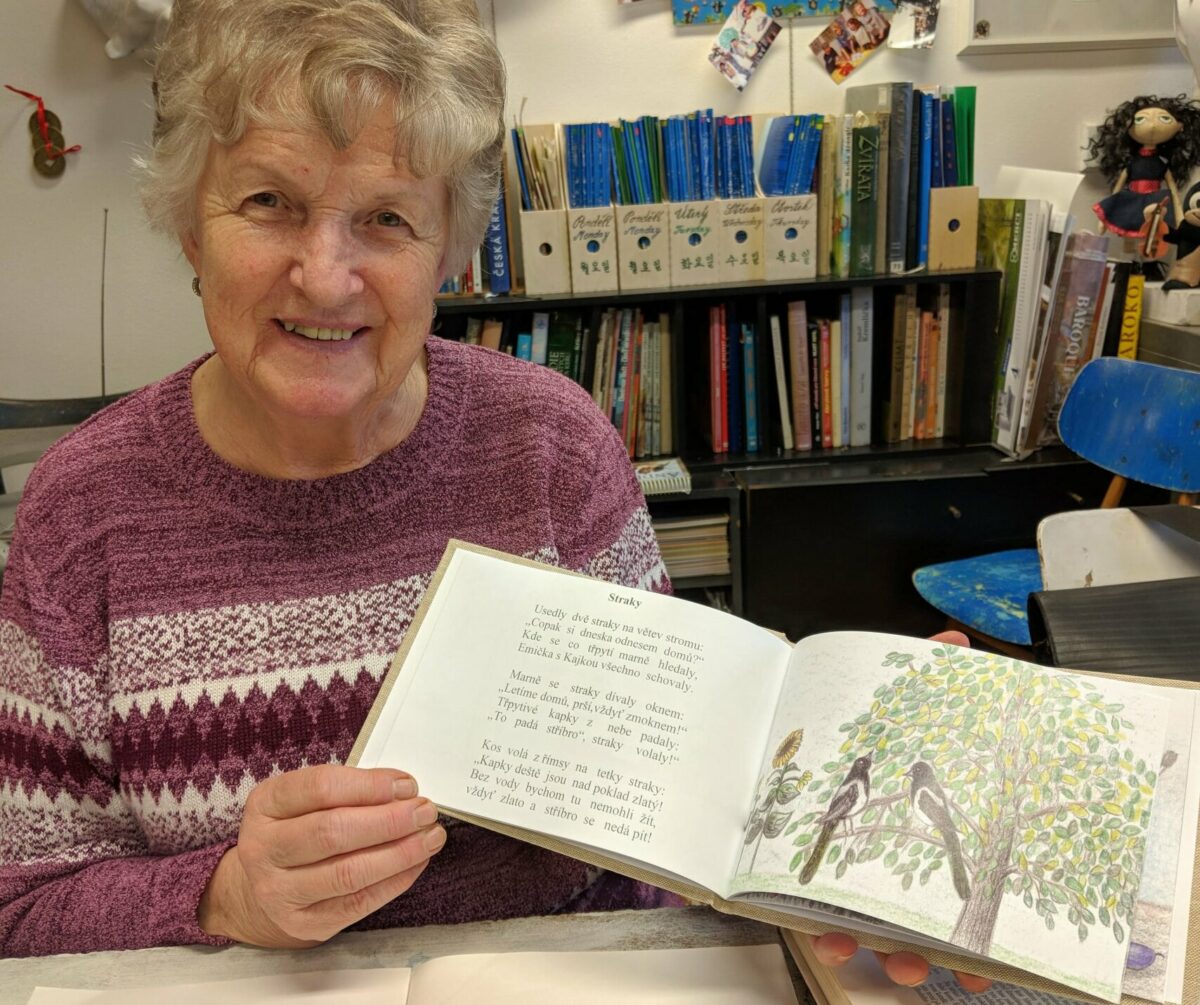 Pondělí
Monday
월요일
Pondělí
Monday
월요일
Úterý
Tuesday
화요일
Středa
수요일
Čtvrtek
Thursday
목요일
ZVÍŘATA
ČESKÁ
BAROQUE
BAROKO
Straky
Usedly dvě straky na větev stromu:
„Copak si dneska odnesem domů?“
Kde se co třpytí marně hledaly,
Emička s Kajkou všechno schovaly.
Marně se straky dívaly oknem:
„Letíme domů, prší, vždyť zmoknem!“
Třpytivé kapky z nebe padaly:
„To padá stříbro“, straky volaly!“
Kos volá z římsy na tetky straky:
„Kapky deště jsou nad poklad zlatý!
Bez vody bychom tu nemohli žít,
vždyť zlato a stříbro se nedá pít!